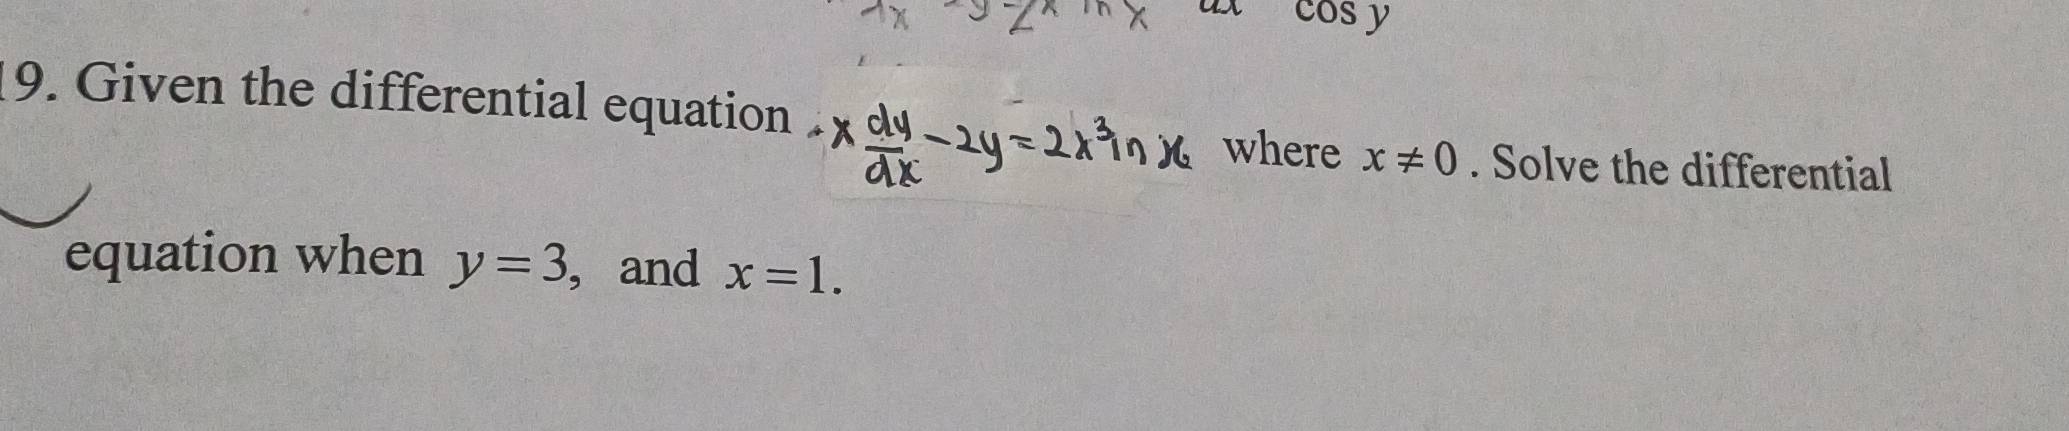 cos y
19. Given the differential equation x dy/dx - 2y = 2x³ ln x where x ≠ 0. Solve the differential
equation when y = 3, and x = 1.